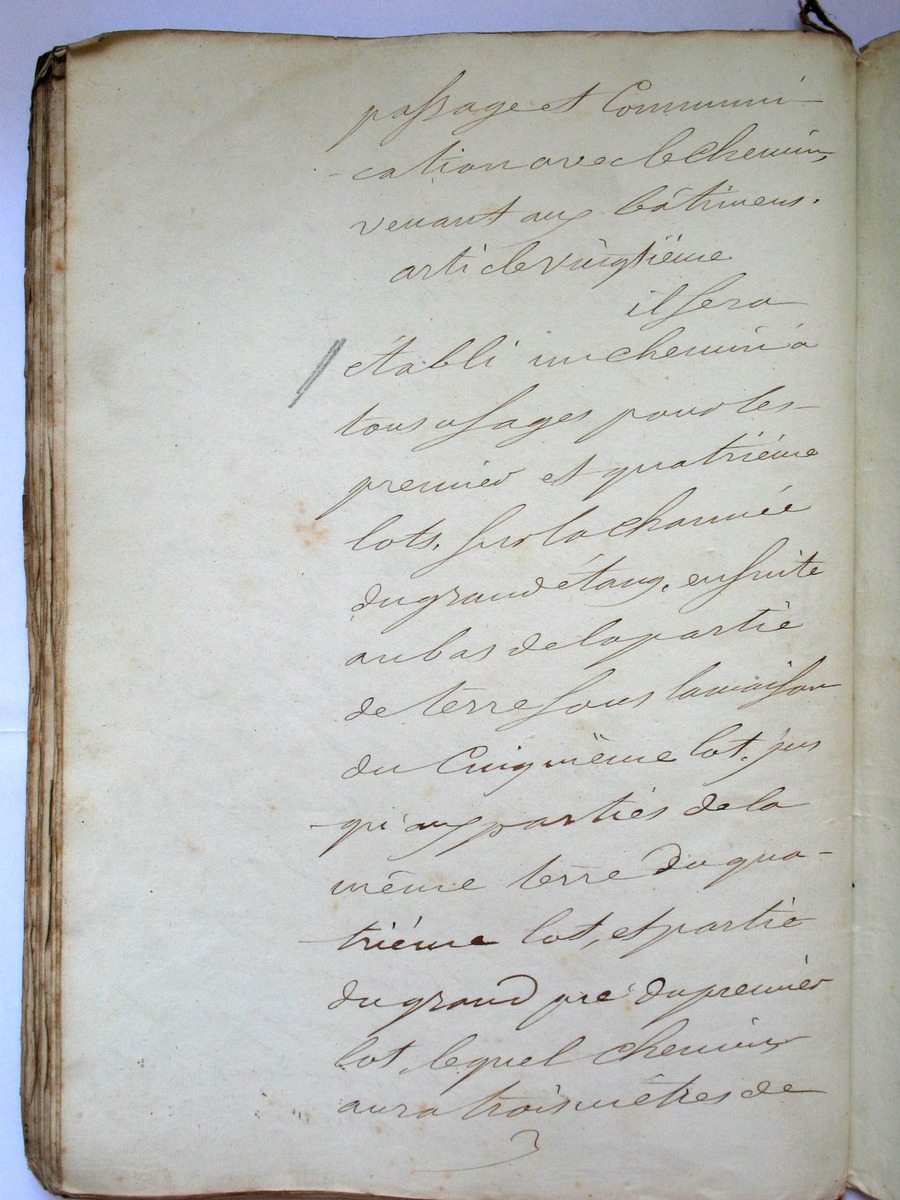 passage et Communi
-cation avec le chemin,
venant aux bâtimens.
article vingtième
il sera
établi un chemin à
tous usages pour les
premier et quatrième
lots, sur la chaussée
du grand étang, ensuite
au bas de la partie
de terre sous la maison
du Cinquième lot, jus
-qu'aux parties de la
même terre du qua-
-trième lot, et partie
du grand pré du premier
lot, lequel chemin
aura trois mètres de